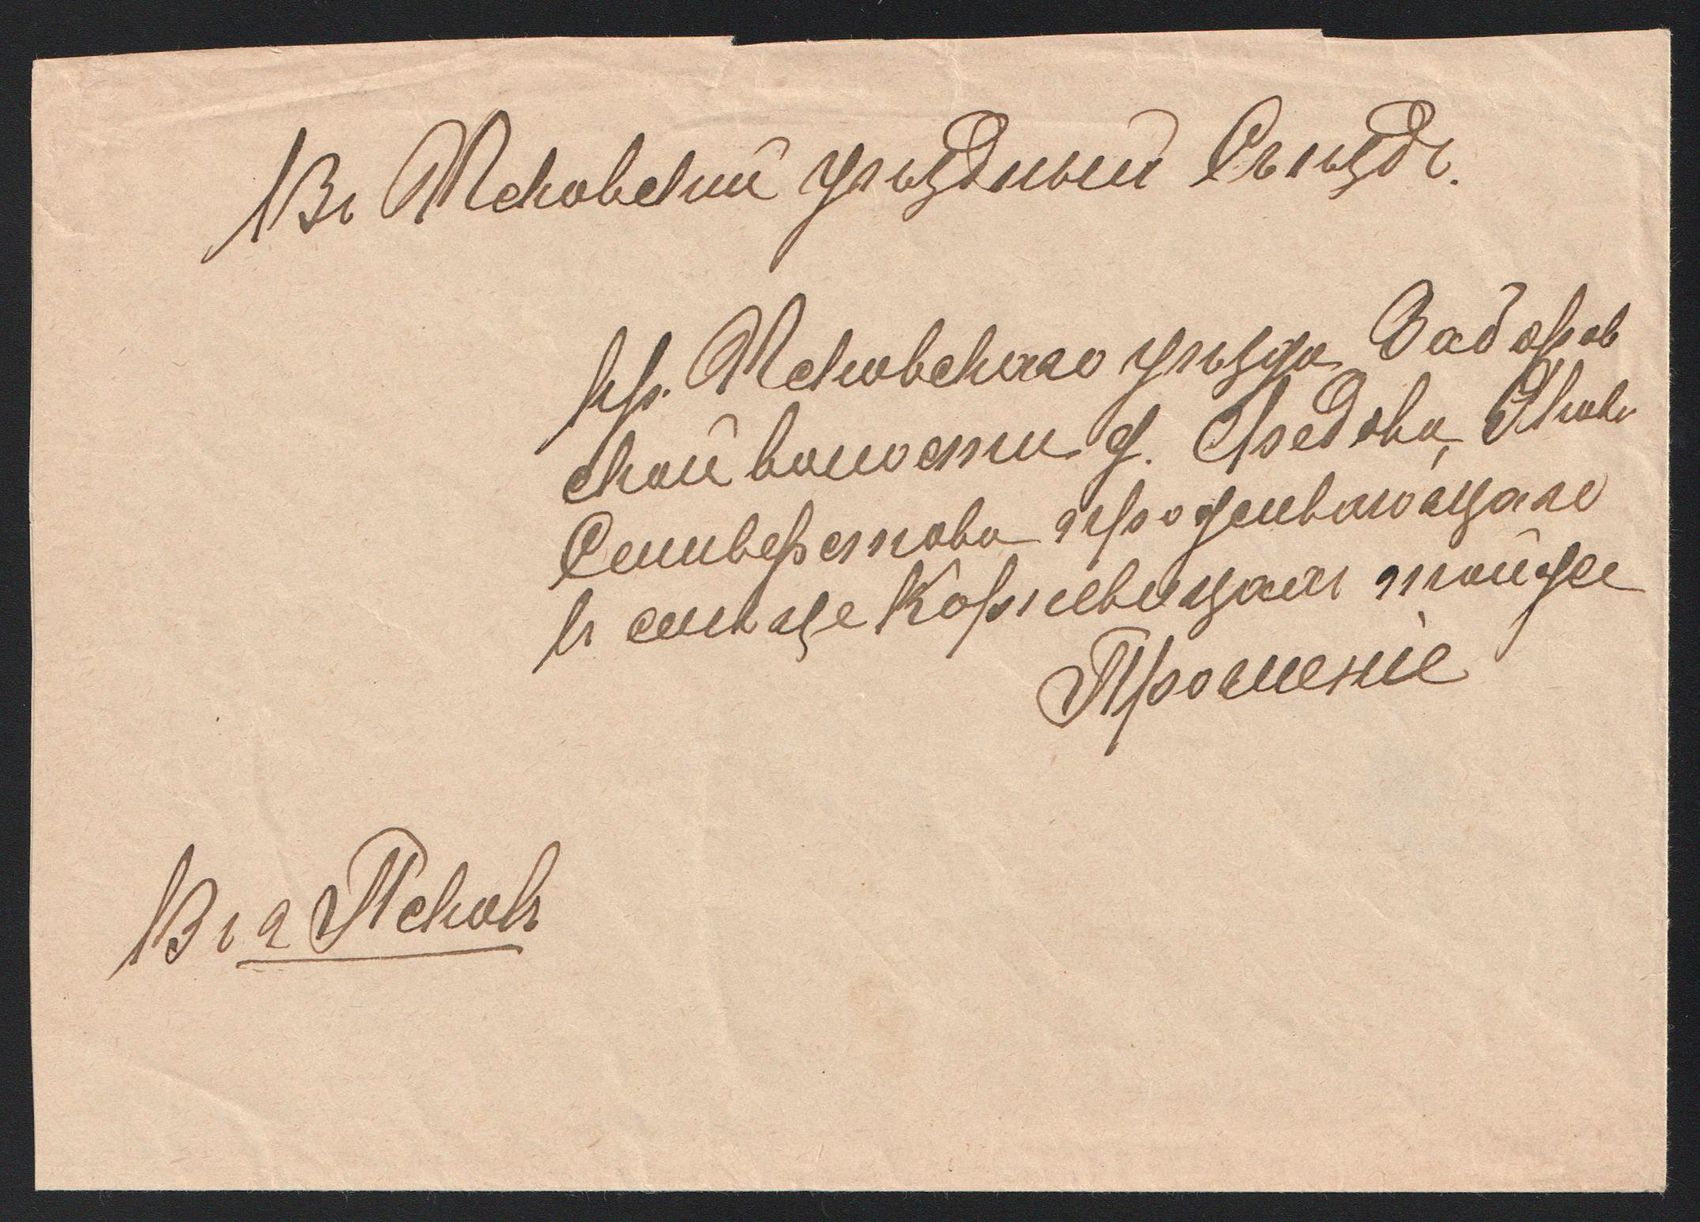 Въ Псковскiй уѣздный Съѣздъ.
Кр. Псковскаго уѣзда Заборов
ской волости д. Гредова, Якова
Селиверстова проживающаго
въ сельце Корневицахъ тойже
Прошенiе
Въ г Псковъ